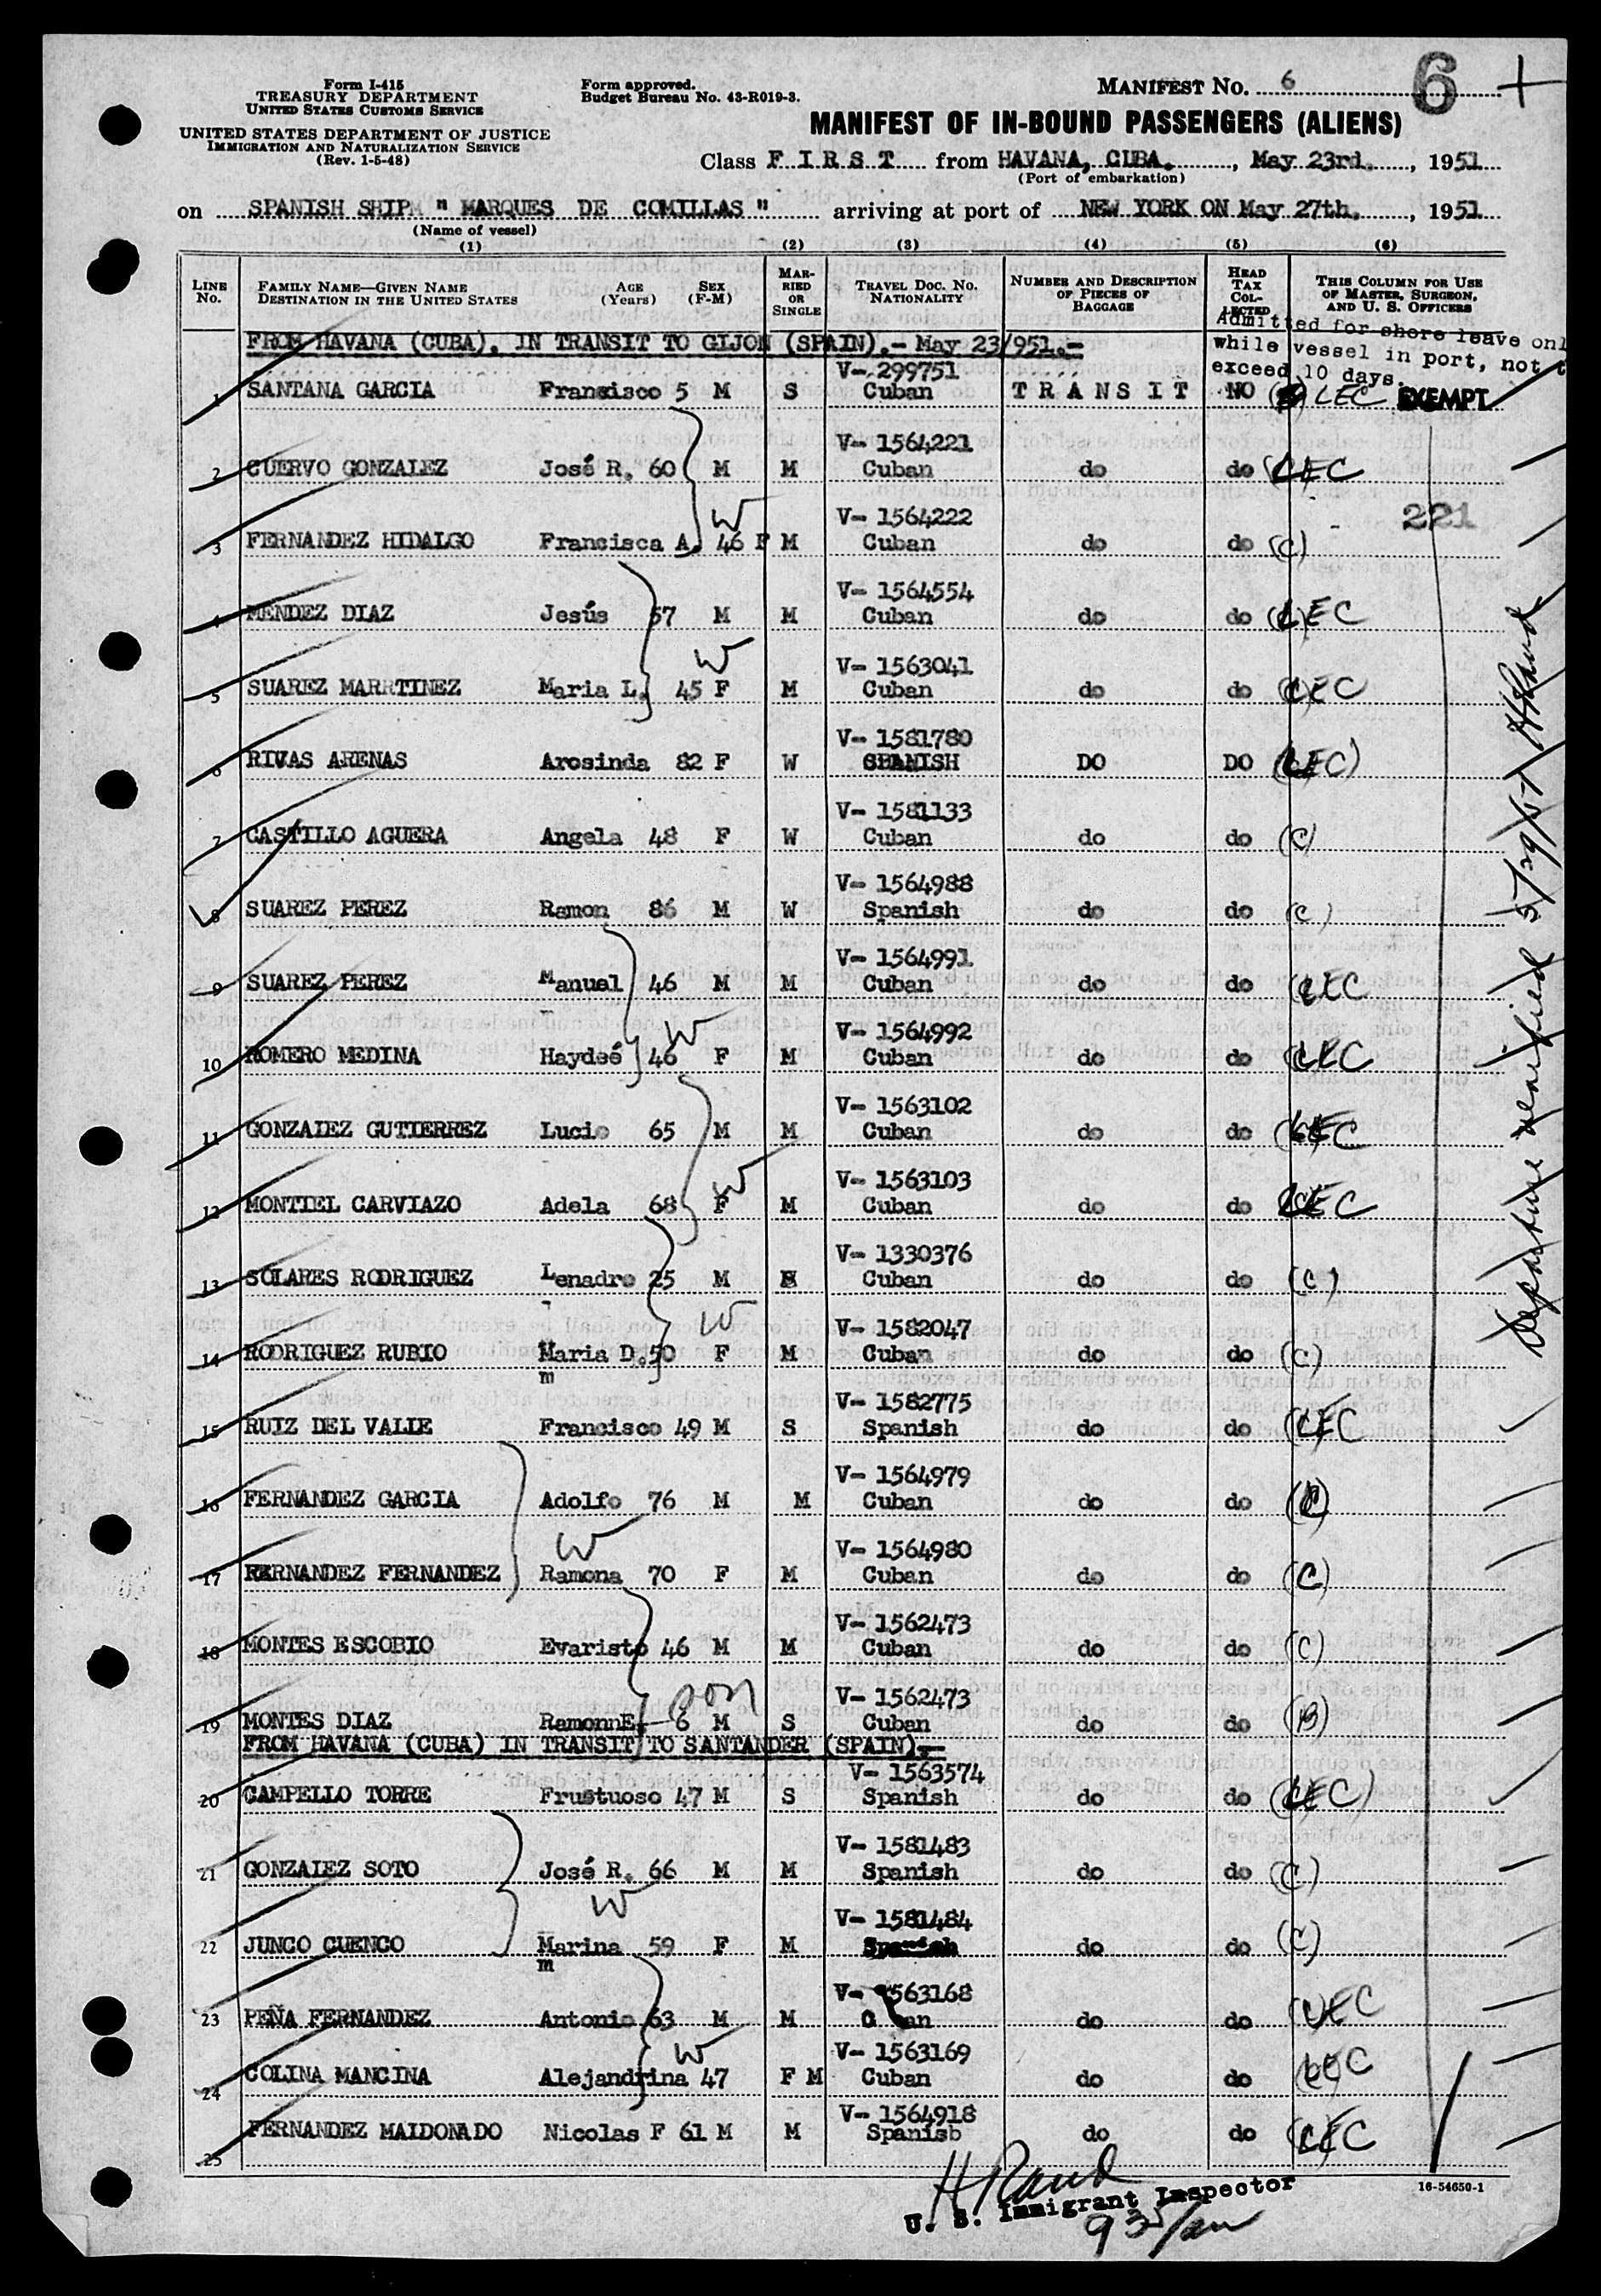 Form I-415
TREASURY DEPARTMENT
UNITED STATES CUSTOMS SERVICE
UNITED STATES DEPARTMENT OF JUSTICE
IMMIGRATION AND NATURALIZATION SERVICE
(Rev. 1-5-48)
Form approved.
Budget Bureau No. 43-R019-3.
MANIFEST No. 6
6
MANIFEST OF IN-BOUND PASSENGERS (ALIENS)
Class F I R S T from HAVANA, CUBA., May 23rd., 1951
(Port of embarkation)
on SPANISH SHIP " MARQUES DE COMILLAS " arriving at port of NEW YORK ON May 27th., 1951
(Name of vessel)
(1) (2) (3) (4) (5) (6)
LINE No. FAMILY NAME—GIVEN NAME DESTINATION IN THE UNITED STATES AGE (Years) SEX (F-M) MARRIED OR SINGLE TRAVEL DOC. No. NATIONALITY NUMBER AND DESCRIPTION OF PIECES OF BAGGAGE HEAD TAX COLLECTED THIS COLUMN FOR USE OF MASTER, SURGEON, AND U. S. OFFICERS
Admitted for shore leave onl
while vessel in port, not t
exceed 10 days.
FROM HAVANA (CUBA), IN TRANSIT TO GIJON (SPAIN).- May 23/951.-
V- 299751
1 SANTANA GARCIA Francisco 5 M S Cuban T R A N S I T NO LEC EXEMPT
V- 1564221
2 CUERVO GONZALEZ José R. 60 M M Cuban do do LEC
W
221
V- 1564222
3 FERNANDEZ HIDALGO Francisca A. 46 F M Cuban do do (C)
V- 1564554
4 MENDEZ DIAZ Jesús 57 M M Cuban do do LEC
W
V- 1563041
5 SUAREZ MARRTINEZ Maria L. 45 F M Cuban do do LEC
V- 1581780
6 RIVAS ARENAS Arosinda 82 F W SPANISH DO DO (LEC)
V- 1581133
7 CASTILLO AGUERA Angela 48 F W Cuban do do (C)
V- 1564988
8 SUAREZ PEREZ Ramon 86 M W Spanish do do (C)
V- 1564991
9 SUAREZ PEREZ Manuel 46 M M Cuban do do LEC
W
V- 1564992
10 ROMERO MEDINA Haydeé 46 F M Cuban do do LEC
V- 1563102
11 GONZALEZ GUTIERREZ Lucio 65 M M Cuban do do LEC
W
V- 1563103
12 MONTIEL CARVIAZO Adela 68 F M Cuban do do LEC
V- 1330376
13 SOLARES RODRIGUEZ Lenadro 25 M Cuban do do (C)
W
V- 1582047
14 RODRIGUEZ RUBIO Maria D. 50 F M Cuban do do (C)
m
V- 1582775
15 RUIZ DEL VALLE Francisco 49 M S Spanish do do LEC
V- 1564979
16 FERNANDEZ GARCIA Adolfo 76 M M Cuban do do (C)
W
V- 1564980
17 FERNANDEZ FERNANDEZ Ramona 70 F M Cuban do do (C)
V- 1562473
18 MONTES ESCOBIO Evaristo 46 M M Cuban do do (C)
son
V- 1562473
19 MONTES DIAZ RamonnE. 6 M S Cuban do do (B)
FROM HAVANA (CUBA) IN TRANSIT TO SANTANDER (SPAIN).-
V- 1563574
20 CAMPELLO TORRE Frustuoso 47 M S Spanish do do LEC
V- 1581483
21 GONZALEZ SOTO José R. 66 M M Spanish do do (C)
W
V- 1581484
22 JUNCO CUENCO Marina 59 F M Spanish do do (C)
m
V- 1563168
23 PEÑA FERNANDEZ Antonio 63 M M do do LEC
W
V- 1563169
24 COLINA MANCINA Alejandrina 47 F M Cuban do do LEC
V- 1564918
25 FERNANDEZ MALDONADO Nicolas F 61 M M Spanish do do LEC
Departure verified 5/29/51 H Rand
H Rand
U. S. Immigrant Inspector
16-54650-1